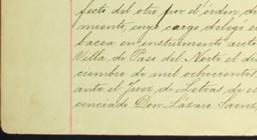 fecto del otro, por el órden, de
miento, cuyo cargo delegé en
bacea en instrumento auto
Villa de Paso del Norte el di
ciembre de mil ochocientos
ante el Juez de Letras de es
cenciado Don Lázaro Saenz,